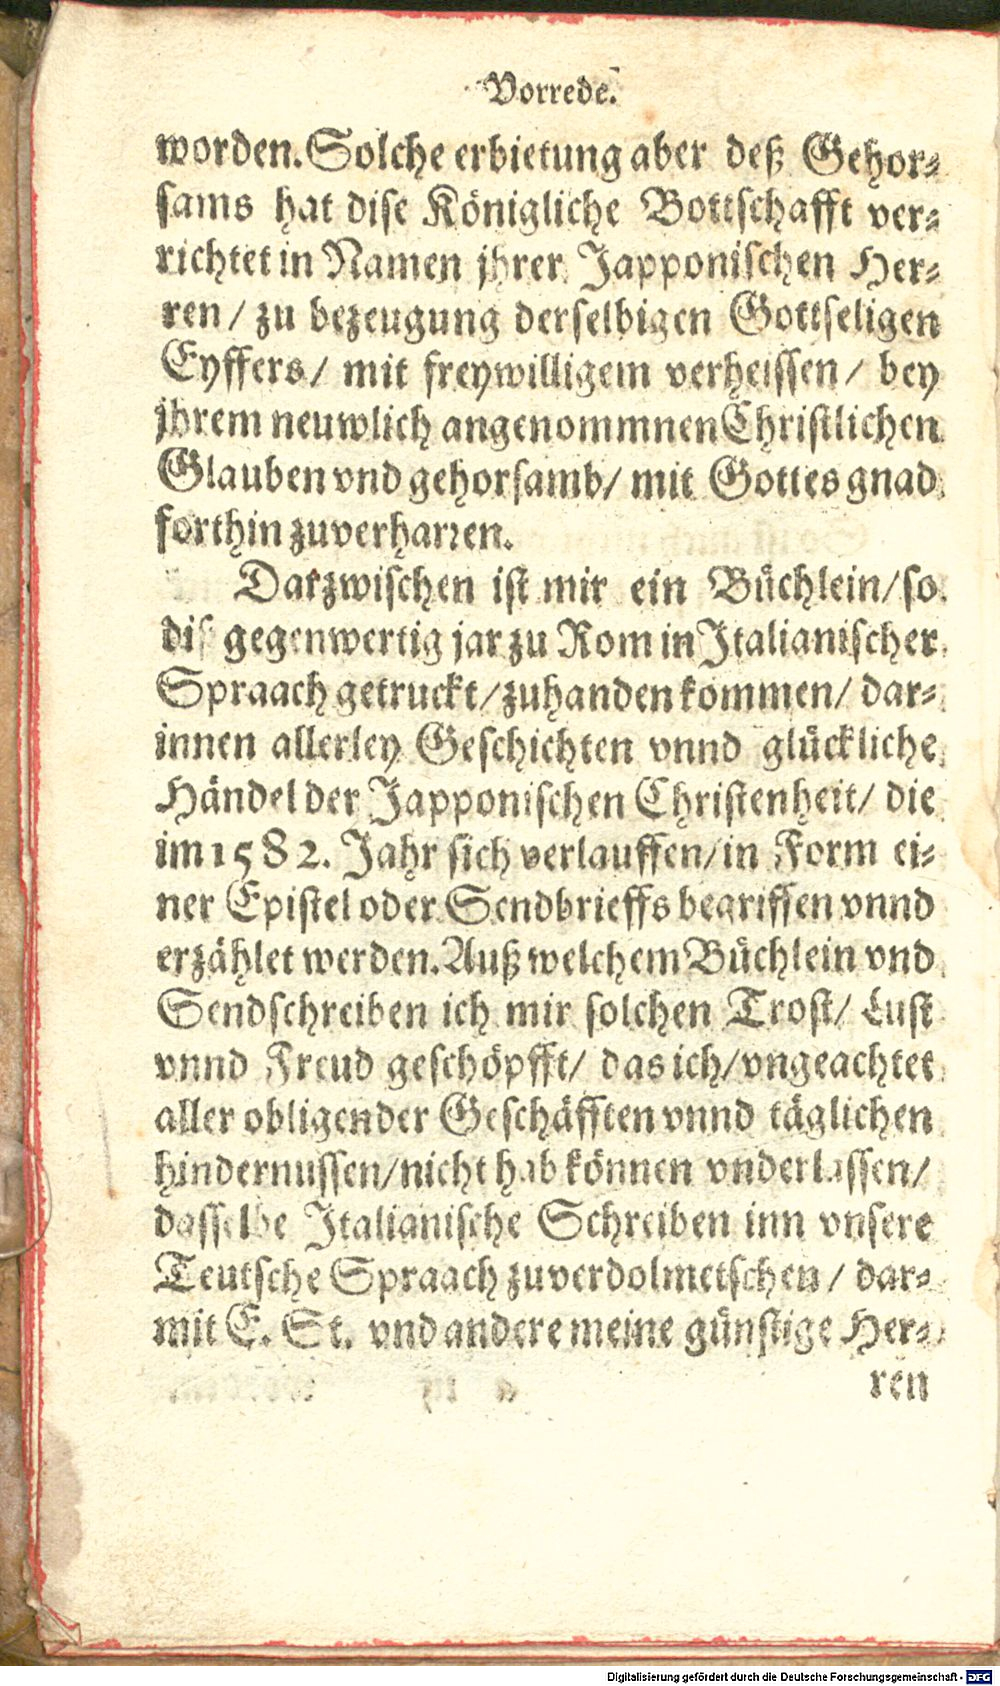 Vorrede.
worden. Solche erbietung aber deß Gehor⸗
sams hat dise Königliche Bottschafft ver⸗
richtet in Namen jhrer Japponischen Her⸗
ren / zu bezeugung derselbigen Gottseligen
Eyffers / mit freywilligem verheissen / bey
jhrem neuwlich angenommnen Christlichen
Glauben vnd gehorsamb / mit Gottes gnad
forthin zuverharren.
Darzwischen ist mir ein Büchlein / so
diß gegenwertig jar zu Rom in Italianischer
Spraach getruckt / zuhanden kommen / dar⸗
innen allerley Geschichten vnnd glückliche
Händel der Japponischen Christenheit / die
im 1582. Jahr sich verlauffen / in Form ei⸗
ner Epistel oder Sendbrieffs begriffen vnnd
erzählet werden. Auß welchem Büchlein vnd
Sendschreiben ich mir solchen Trost / Lust
vnnd Freud geschöpfft / das ich / vngeachtet
aller obligender Geschäfften vnnd täglichen
hindernussen / nicht hab können vnderlassen /
dasselbe Italianische Schreiben inn vnsere
Teutsche Spraach zuverdolmetschen / dar⸗
mit E. St. vnd andere meine günstige Her⸗
ren
Digitalisierung gefördert durch die Deutsche Forschungsgemeinschaft - DFG